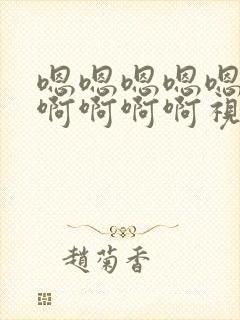 嗯嗯嗯嗯嗯
啊啊啊啊視
趙菊香